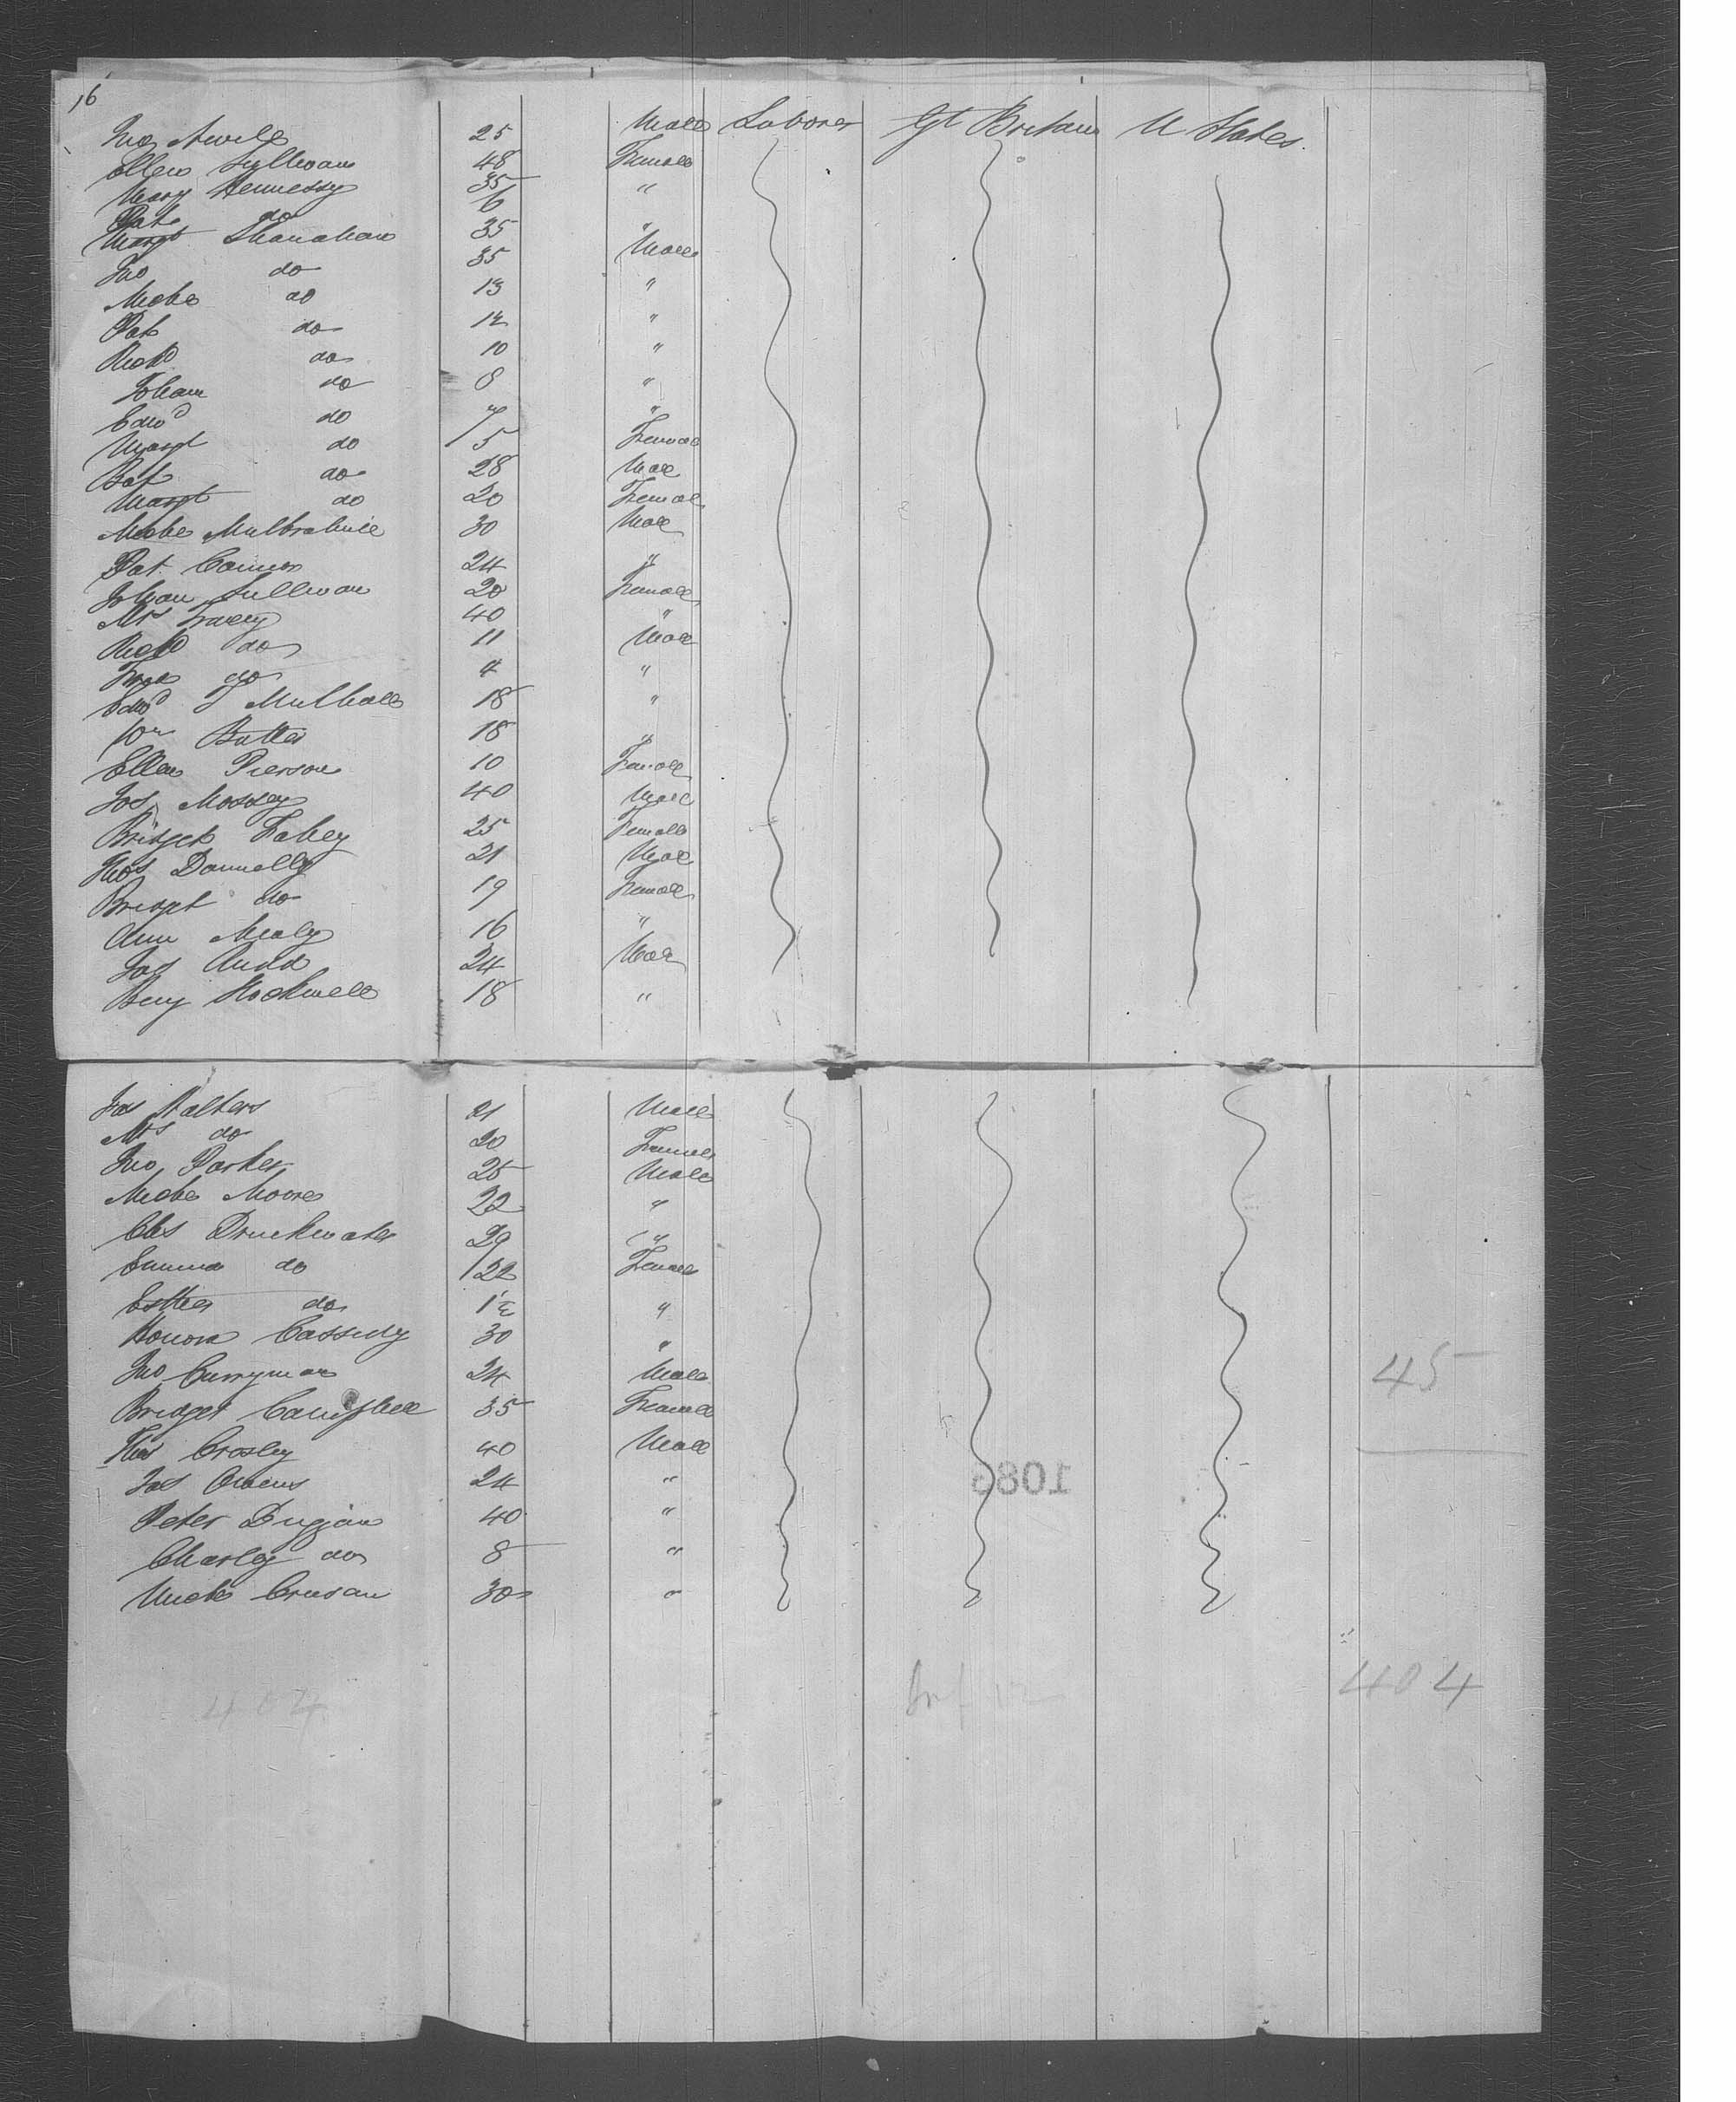 16
Jno Nevile 25 Male Laborer Gt Britain U States.
Ellen Sullivan 48 Female
Mary Hennessy 35 "
Pat do 6
Margt Shanahan 35 "
Jno do 35 Male
Miche do 13 "
Pat do 12 "
Richd do 10 "
Johan do 8 "
Edwd do 7 "
Margt do 5 Female
Pat do 28 Male
Margt do 20 Female
Miche 30 Male
Pat Connor 24 "
Johan Sullivan 20 Female
Mrs Tracey 40 "
Richd do 11 Male
do 4 "
Edwd Mulhall 18 "
Wm Butler 18 "
Ellen Pierson 10 Female
Jos Mossey 40 Male
Bridget Fahey 25 Female
Thos Donnelly 21 Male
Bridget do 19 Female
Ann Mealy 16 "
Jas Audd 24 Male
Benj Stockwell 18 "
Jas Walters 21 Male
Mrs do 20 Female
Jno Parker 25 Male
Miche Moore 22 "
Chs Druckwater 29 "
Emma do 22 Female
Esther do 1½ "
Honora Cassidy 30 "
Jno Curryman 24 Male
45
Bridget Campbell 35 Female
Thos Crosley 40 Male
Jas Owens 24 "
1086
Peter Dugan 40 "
Charley do 8 "
Miche Crusan 30 "
404
404